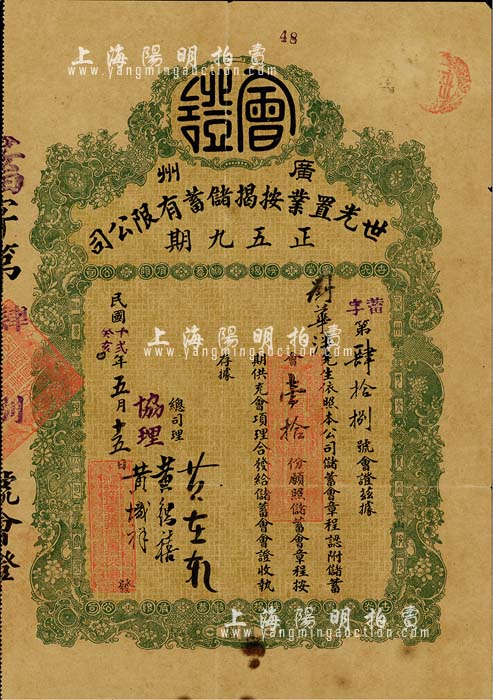 48
會證
廣州
世光置業按揭儲蓄有限公司
正五九期
蓄字第肆拾捌號會證茲據
劉華
先生依照本公司儲蓄會章程認附儲蓄
會壹拾份願照儲蓄會章程按
期供充會項理合發給儲蓄會會證收執
存據
總司理
協理
黃
黃
祥
民國十弍年癸亥五月十五日
發
字第肆
號會證
上海陽明拍賣
www.yangmingauction.com
上海陽明拍賣
www.yangmingauction.com
上海陽明拍賣
www.yangmingauction.com
上海陽明拍賣
www.yangmingauction.com